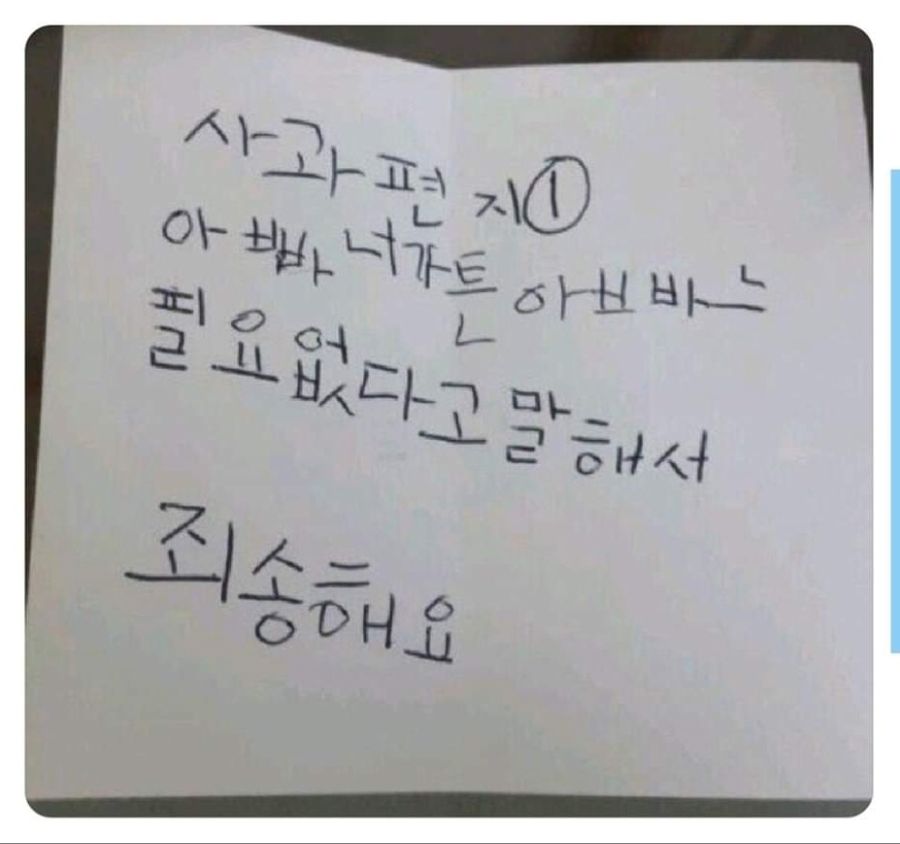 사과편지①
아빠 너가튼 아ㅂ바느
필요없다고 말해서
죄송해요